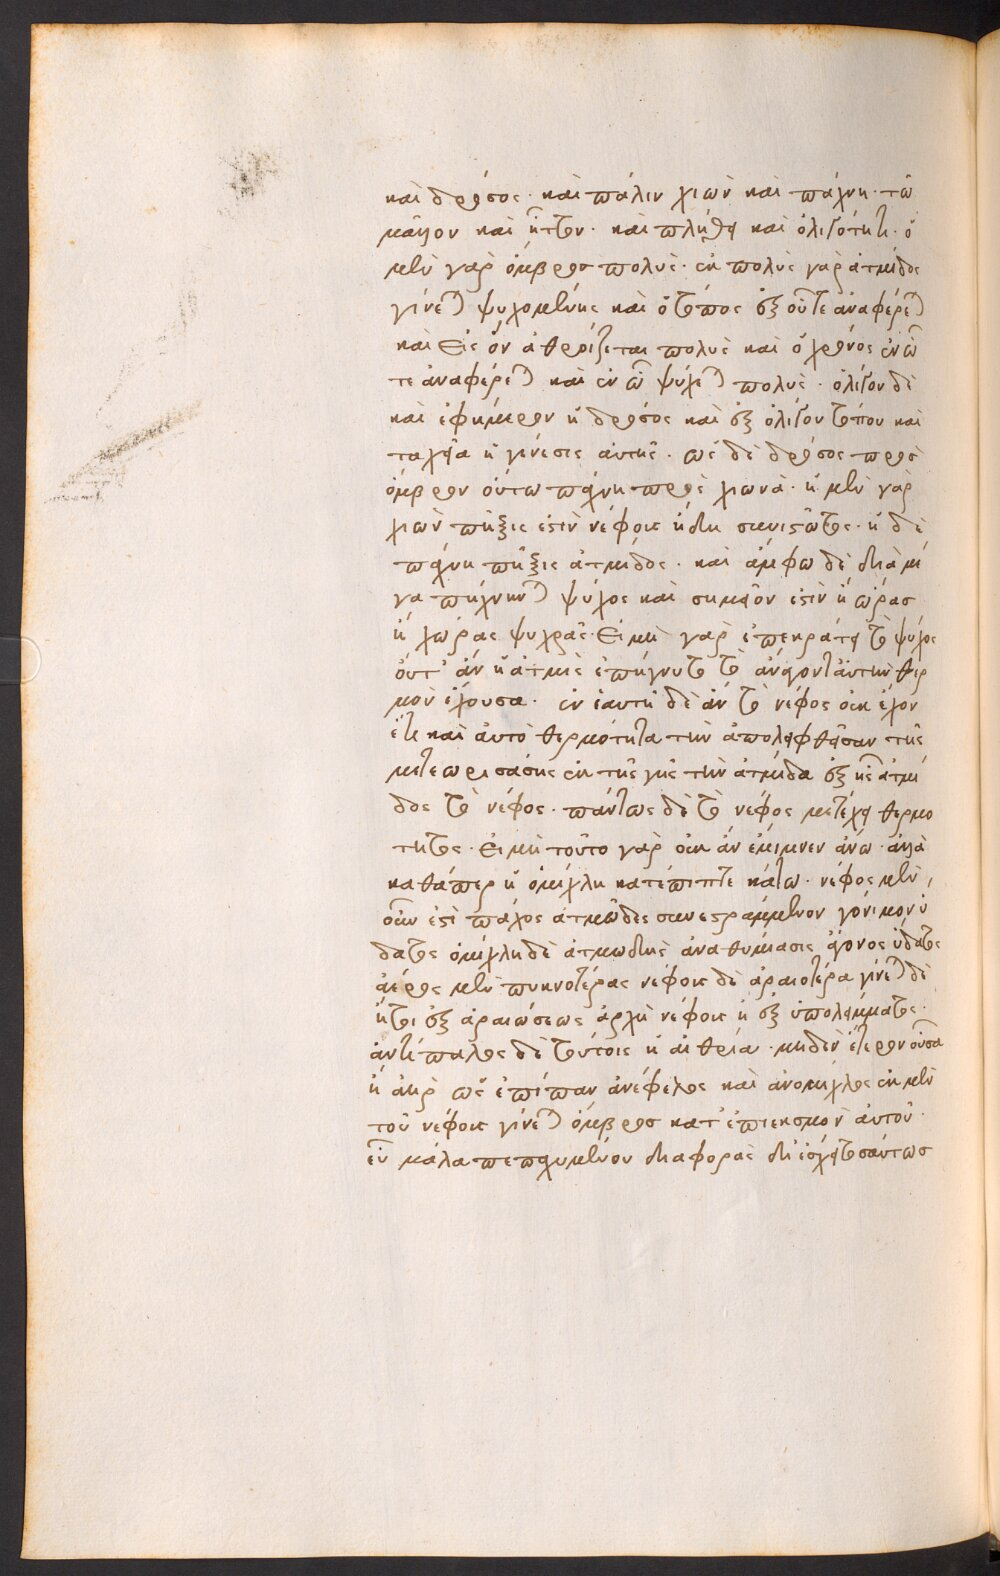 καὶ δρόσος· καὶ πάλιν χιὼν καὶ πάχνη· τῶ
μᾶλλον καὶ ἧττον· καὶ πλήθει καὶ ὀλιγότητι· ὁ
μὲν γὰρ ὄμβρος πολὺς· ἐκ πολλῆς γὰρ ἀτμίδος
γίνεται ψυχομένης καὶ ὁ τόπος ἐξ οὗ τε ἀναφέρεται
καὶ εἰς ὃν ἀθροίζεται πολὺς καὶ ὁ χρόνος ἐν ὧ
τε ἀναφέρεται καὶ ἐν ὧ ψύχεται πολὺς· ὀλίγον δὲ
καὶ ἐφήμερον ἡ δρόσος καὶ ἐξ ὀλίγου τόπου καὶ
ταχεῖα ἡ γένεσις αὐτῆς· ὡς δὲ δρόσος πρὸς
ὄμβρον οὕτω πάχνη πρὸς χιόνα· ἡ μὲν γὰρ
χιὼν πῆξις ἐστὶν νέφους ἤδη συνεστῶτος· ἡ δὲ
πάχνη πῆξις ἀτμίδος· καὶ ἄμφω δὲ διὰ μέ
γα πήγνυνται ψύχος καὶ σημεῖον ἐστὶν ἢ ὥρας
ἢ χώρας ψυχρᾶς· εἰ μὴ γὰρ ἐπεκράτει τὸ ψύχος
οὔτ' ἂν ἡ ἀτμὶς ἐπήγνυτο τὸ ἀνάγον αὐτὴν θερ
μὸν ἔχουσα· ἐν ἑαυτῆ δὲ ἂν τὸ νέφος οὐκ ἔχον
ἔτι καὶ αὐτὸ θερμότητα τὴν ἀπολειφθεῖσαν τῆς
μετεωρισάσης ἐκ τῆς γῆς τὴν ἀτμίδα ἐξ ἧς ἀτμί
δος τὸ νέφος· πάντως δὲ τὸ νέφος μετέχει θερμό
τητος· εἰ μὴ τοῦτο γὰρ οὐκ ἂν ἔμεινεν ἄνω· ἀλλὰ
καθάπερ ἡ ὀμίχλη κατέπιπτε κάτω· νέφος μὲν
οὖν ἐστὶ πάχος ἀτμῶδες συνεστραμμένον γόνιμον ὕ
δατος ὀμίχλη δὲ ἀτμώδης ἀναθυμίασις ἄγονος ὕδατος
ἀέρος μὲν πυκνοτέρας νέφους δὲ ἀραιοτέρα γίνεται δὲ
ἤτοι ἐξ ἀραιώσεως ἀρχὴ νέφους ἢ ἐξ ὑπολείμματος·
ἀντίπαλος δὲ τούτοις ἡ αἰθρία· μηδὲν ἕτερον οὖσα
ἢ ἀὴρ ὡς ἐπίπαν ἀνέφελος καὶ ἀνόμιχλος ἐκ μὲν
τοῦ νέφους γίνεται ὄμβρος κατ' ἐπιεκσμὸν αὐτοῦ·
εὖ μάλα πεπαχυμένου διαφορὰς